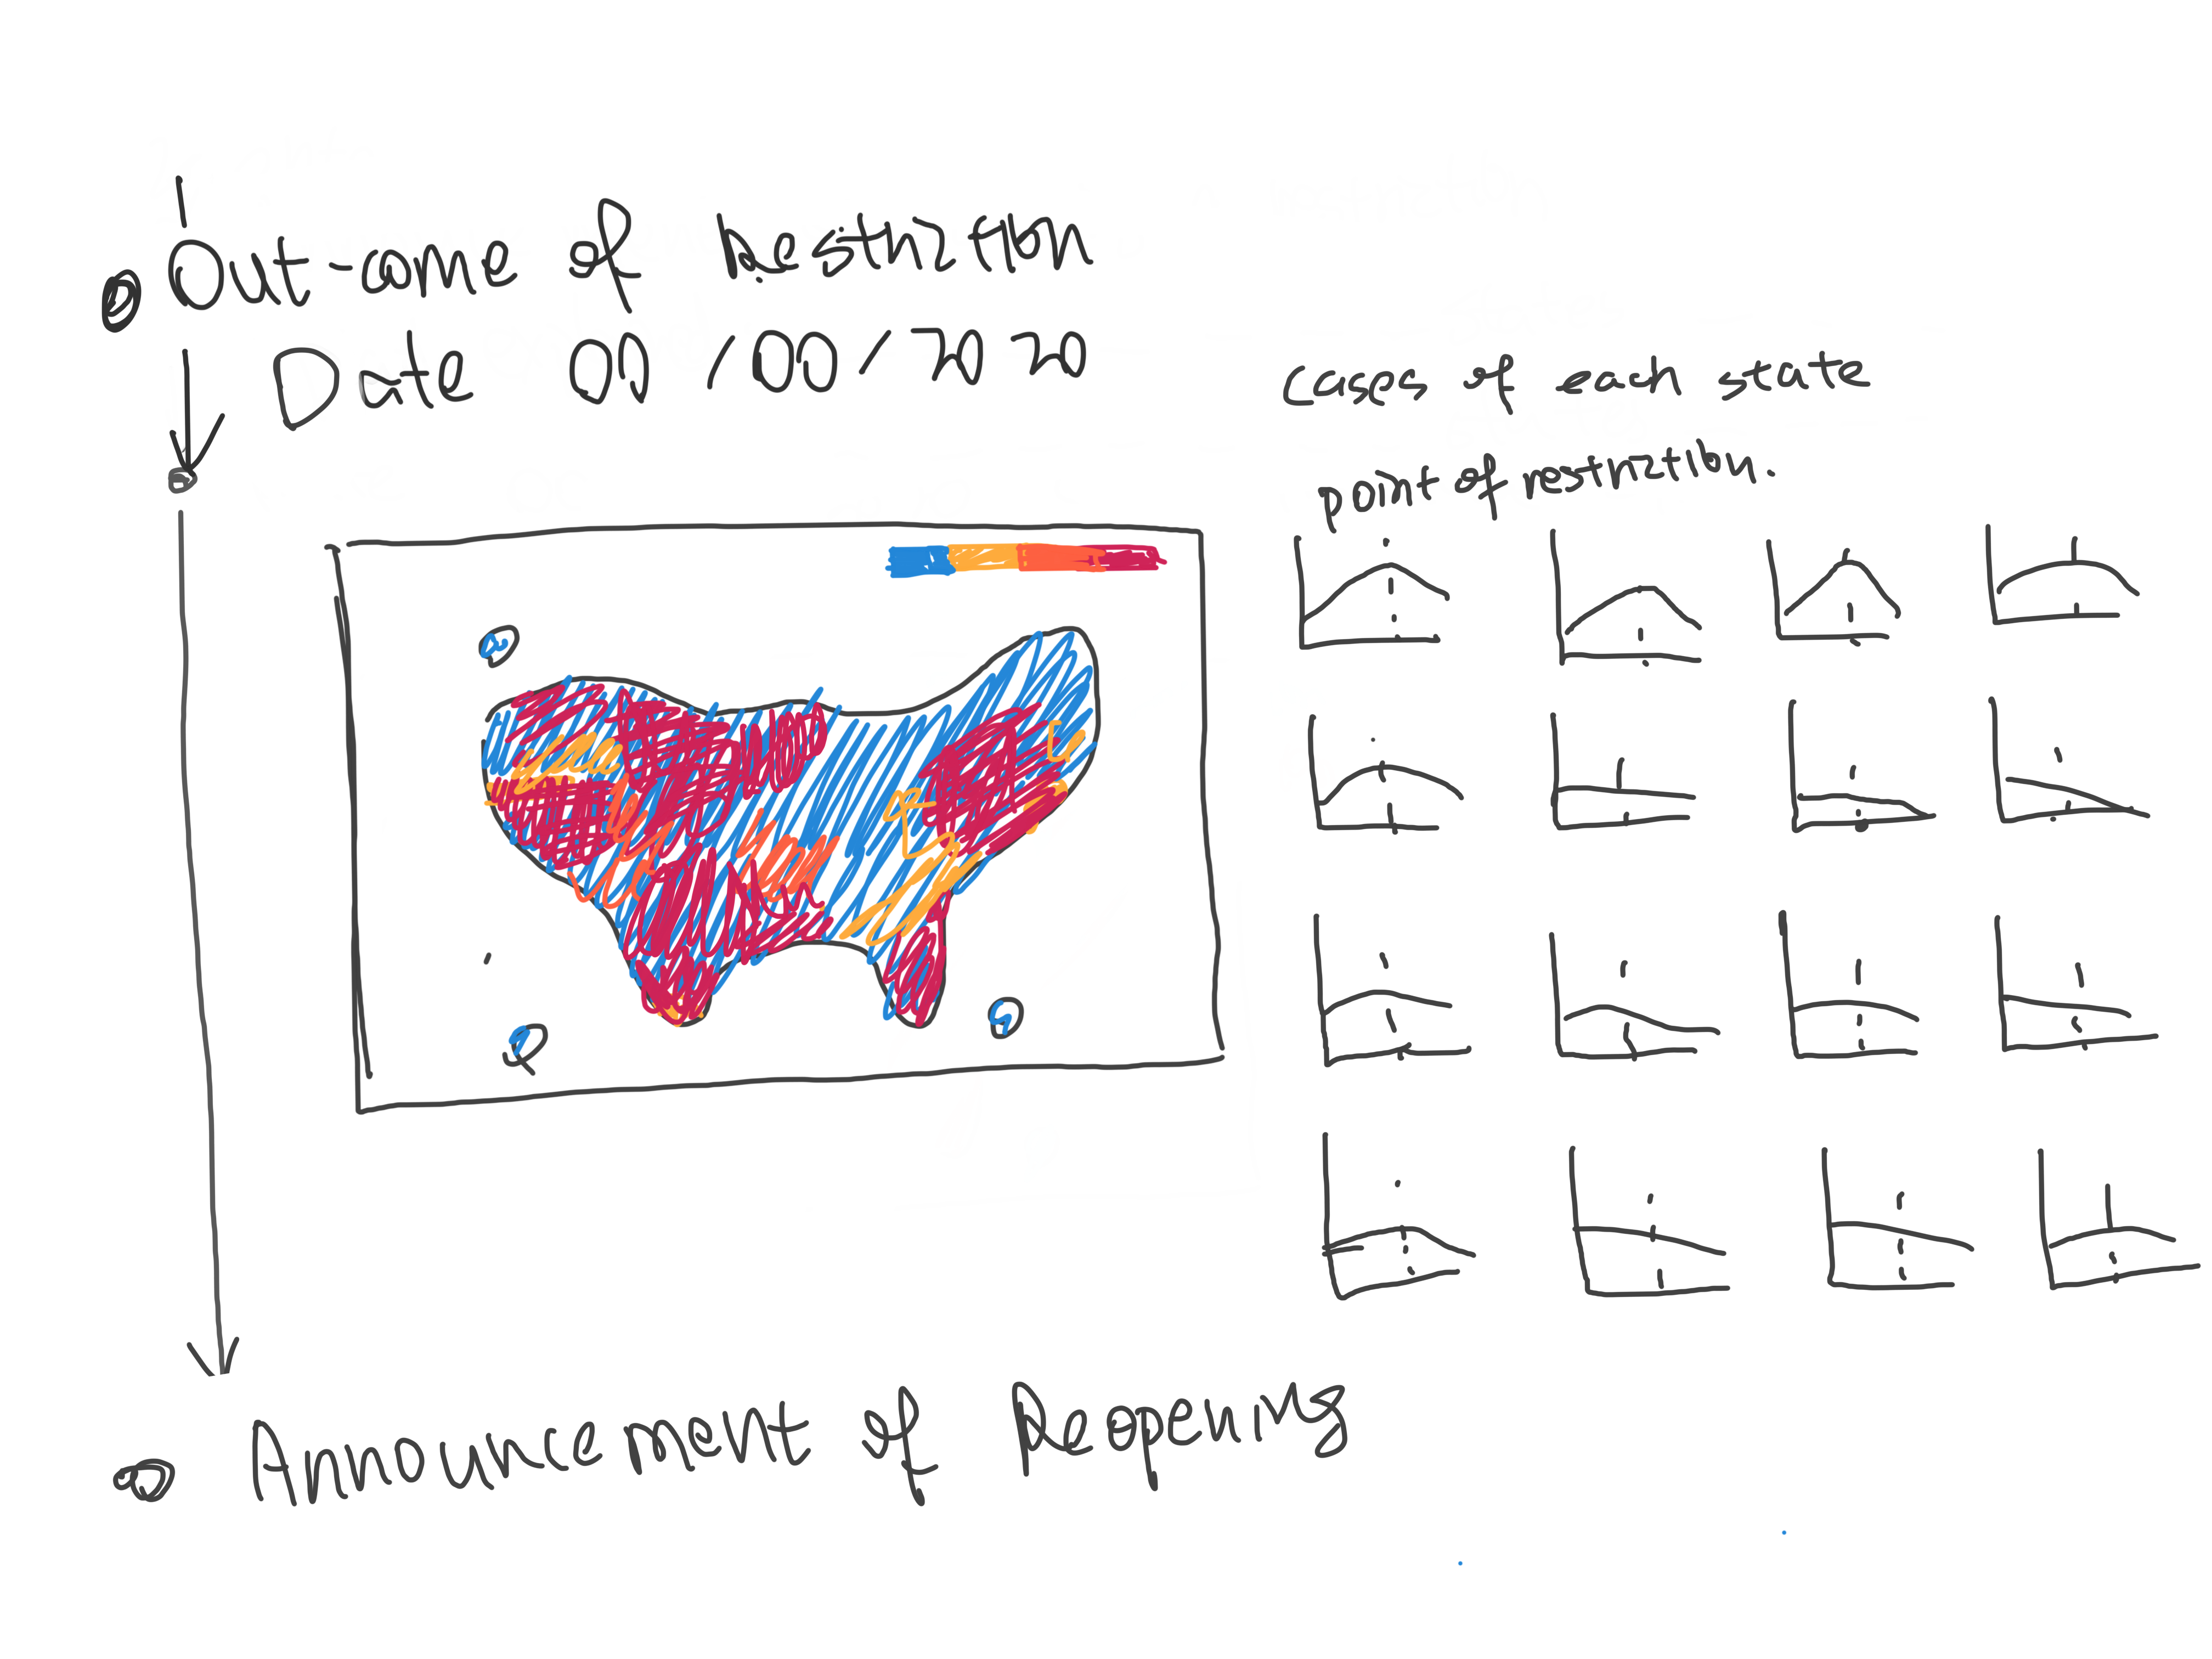 Out-come of Restriction
Date 00/00/2020
cases of each state
point of restriction.
Announcement of Reopening